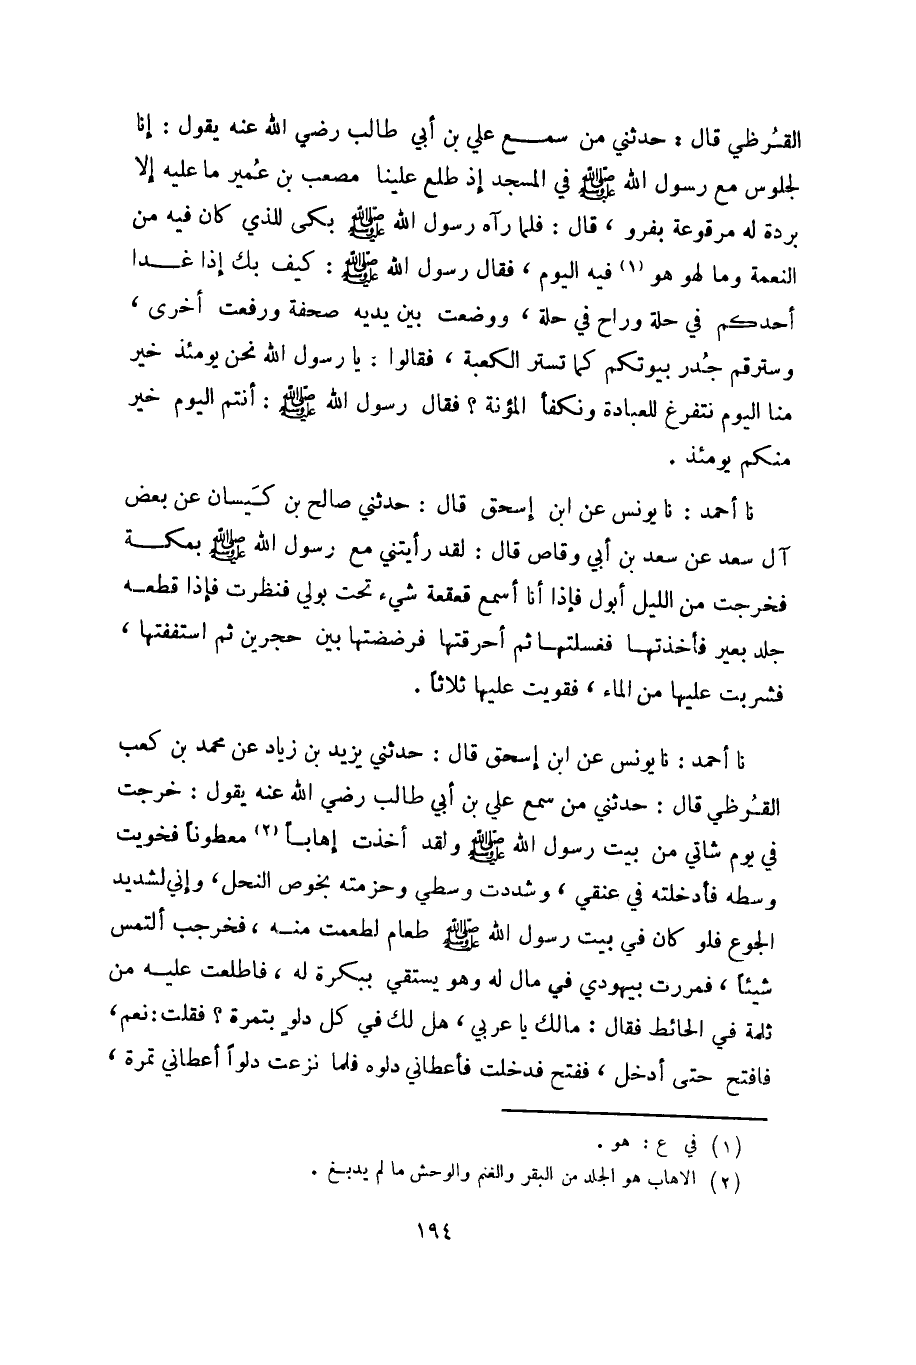 القُرظي قال : حدثني من سمـــع علي بن أبي طالب رضي الله عنه يقول : إنا
لجلوس مع رسول الله ﷺ في المسجد إذ طلع علينا مصعب بن عُمير ما عليه إلا
بردة له مرقوعة بفرو ، قال : فلما رآه رسول الله ﷺ بكى للذي كان فيه من
النعمة وما لهو هو (١) فيه اليوم ، فقال رسول الله ﷺ : كيف بك إذا غـــدا
أحدكم في حلة وراح في حلة ، ووضعت بين يديه صحفة ورفعت أخرى ،
وسترقم جُدر بيوتكم كما تستر الكعبة ، فقالوا : يا رسول الله نحن يومئذ خير
منا اليوم نتفرغ للعبادة ونكفأ المؤنة ؟ فقال رسول الله ﷺ : أنتم اليوم خير
منكم يومئذ .
نا أحمد : نا يونس عن ابن إسحق قال : حدثني صالح بن كَيسان عن بعض
آل سعد عن سعد بن أبي وقاص قال : لقد رأيتني مع رسول الله ﷺ بمكـــة
فخرجت من الليل أبول فإذا أنا أسمع قعقعة شيء تحت بولي فنظرت فإذا قطعـه
جلد بعير فأخذتهـا فغسلتهـا ثم أحرقتها فرضضتها بين حجرين ثم استففتها ،
فشربت عليها من الماء ، فقويت عليها ثلاثاً .
نا أحمد : نا يونس عن ابن إسحق قال : حدثني يزيد بن زياد عن محمد بن كعب
القُرظي قال : حدثني من سمع علي بن أبي طالب رضي الله عنه يقول : خرجت
في يوم شاتي من بيت رسول الله ﷺ ولقد أخذت إهابـاً (٢) معطوناً فخويت
وسطه فأدخلته في عنقي ، وشددت وسطي وحزمته بخوص النحل ، وإني لشديد
الجوع فلو كان في بيت رسول الله ﷺ طعام لطعمت منـه ، فخرجب ألتمس
شيئاً ، فمررت بيهودي في مال له وهو يستقي ببكرة له ، فاطلعت عليـه من
ثلمة في الحائط فقال : مالك يا عربي ، هل لك في كل دلوٍ بتمرة ؟ فقلت : نعم ،
فافتح حتى أدخل ، ففتح فدخلت فأعطاني دلوه فلما نزعت دلواً أعطاني تمرة ،
(١) في ع : هو .
(٢) الاهاب هو الجلد من البقر والغنم والوحش ما لم يدبـغ .
١٩٤